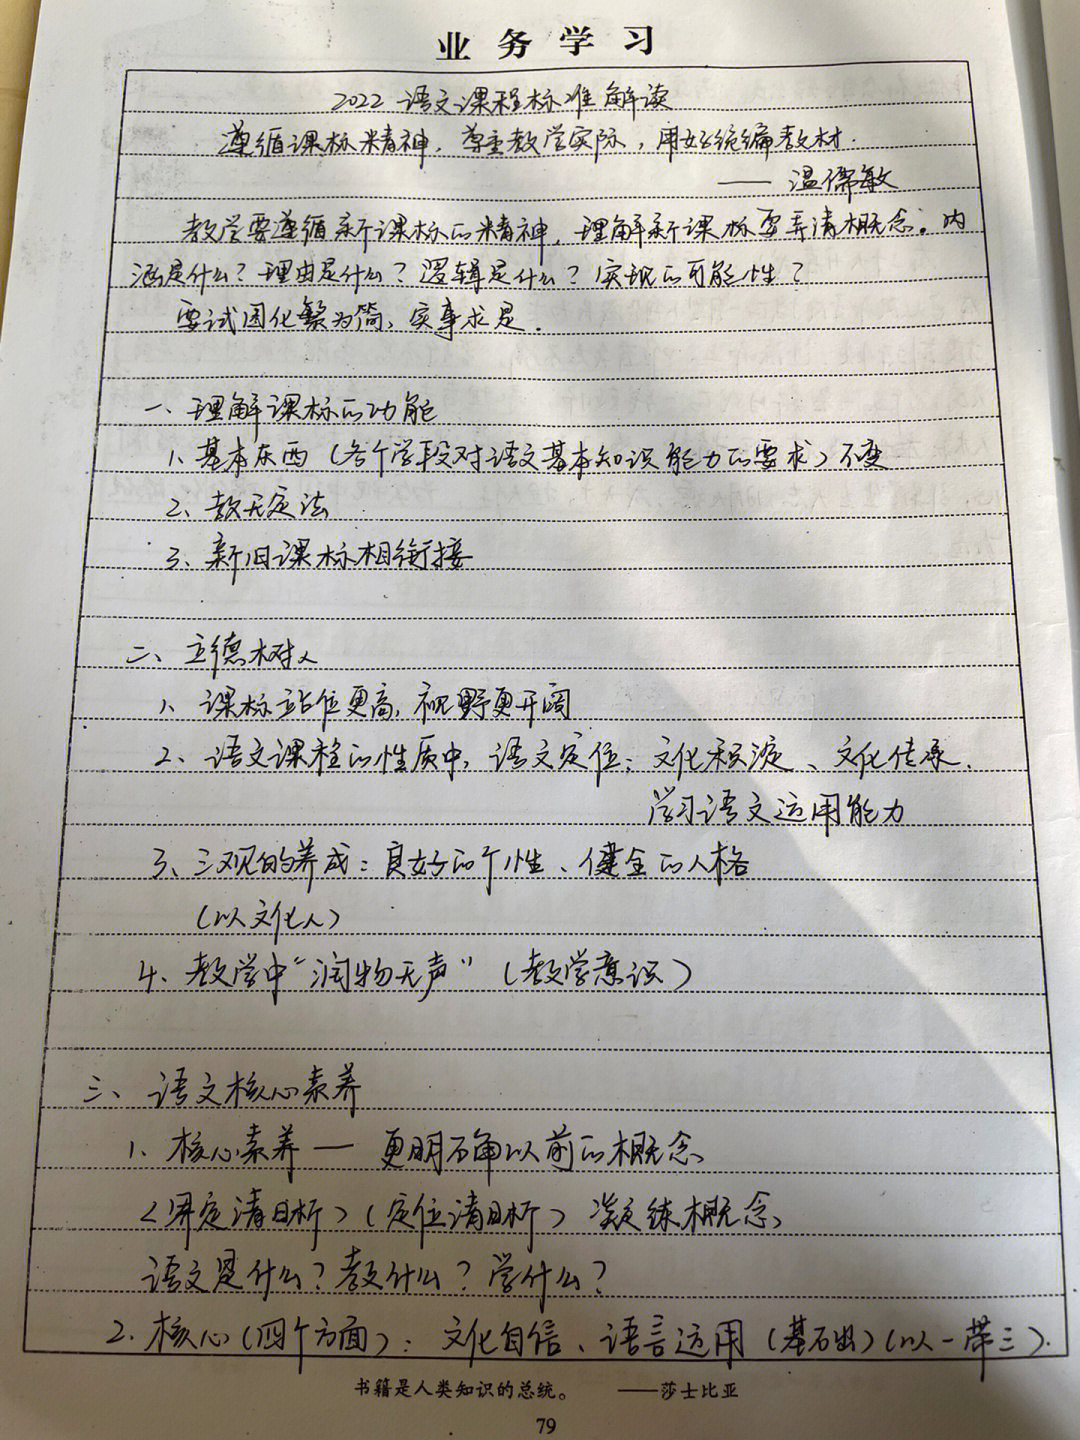 业务学习
2022 语文课程标准解读
遵循课标精神，尊重教学实际，用好统编教材.
—— 温儒敏
教学要遵循新课标的精神，理解新课标要弄清概念。内
涵是什么？理由是什么？逻辑是什么？实现的可能性？
要试图化繁为简，实事求是.
一、理解课标的功能
1、基本东西（各个学段对语文基本知识能力的要求）不变
2、教无定法
3、新旧课标相衔接
二、立德树人
1、课标站位更高，视野更开阔
2、语文课程的性质中，语文定位：文化积淀、文化传承、
学习语文运用能力
3、三观的养成：良好的个性、健全的人格
（以文化人）
4、教学中“润物无声”（教学意识）
三、语文核心素养
1、核心素养 — 更明确以前的概念
（界定清晰）（定位清晰）凝练概念
语文是什么？教什么？学什么？
2、核心（四个方面）：文化自信、语言运用（基础）（以一带三）.
书籍是人类知识的总统。 ——莎士比亚
79